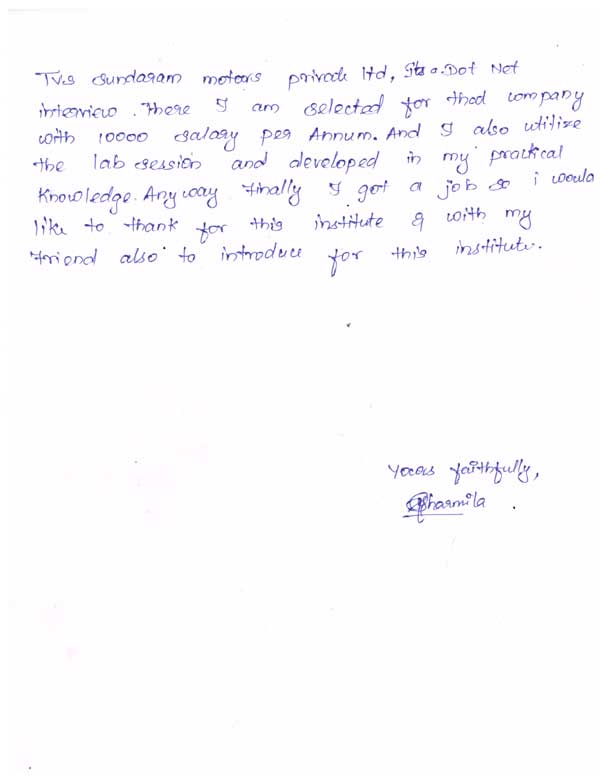 TVS Sundaram motors private ltd, Its a Dot Net
interview. There I am selected for that company
with 10000 salary per Annum. And I also utilize
the lab session and developed in my practical
knowledge. Any way finally I got a job so i would
like to thank for this institute & with my
friend also to introduce for this institute.
Yours faithfully,
Sharmila